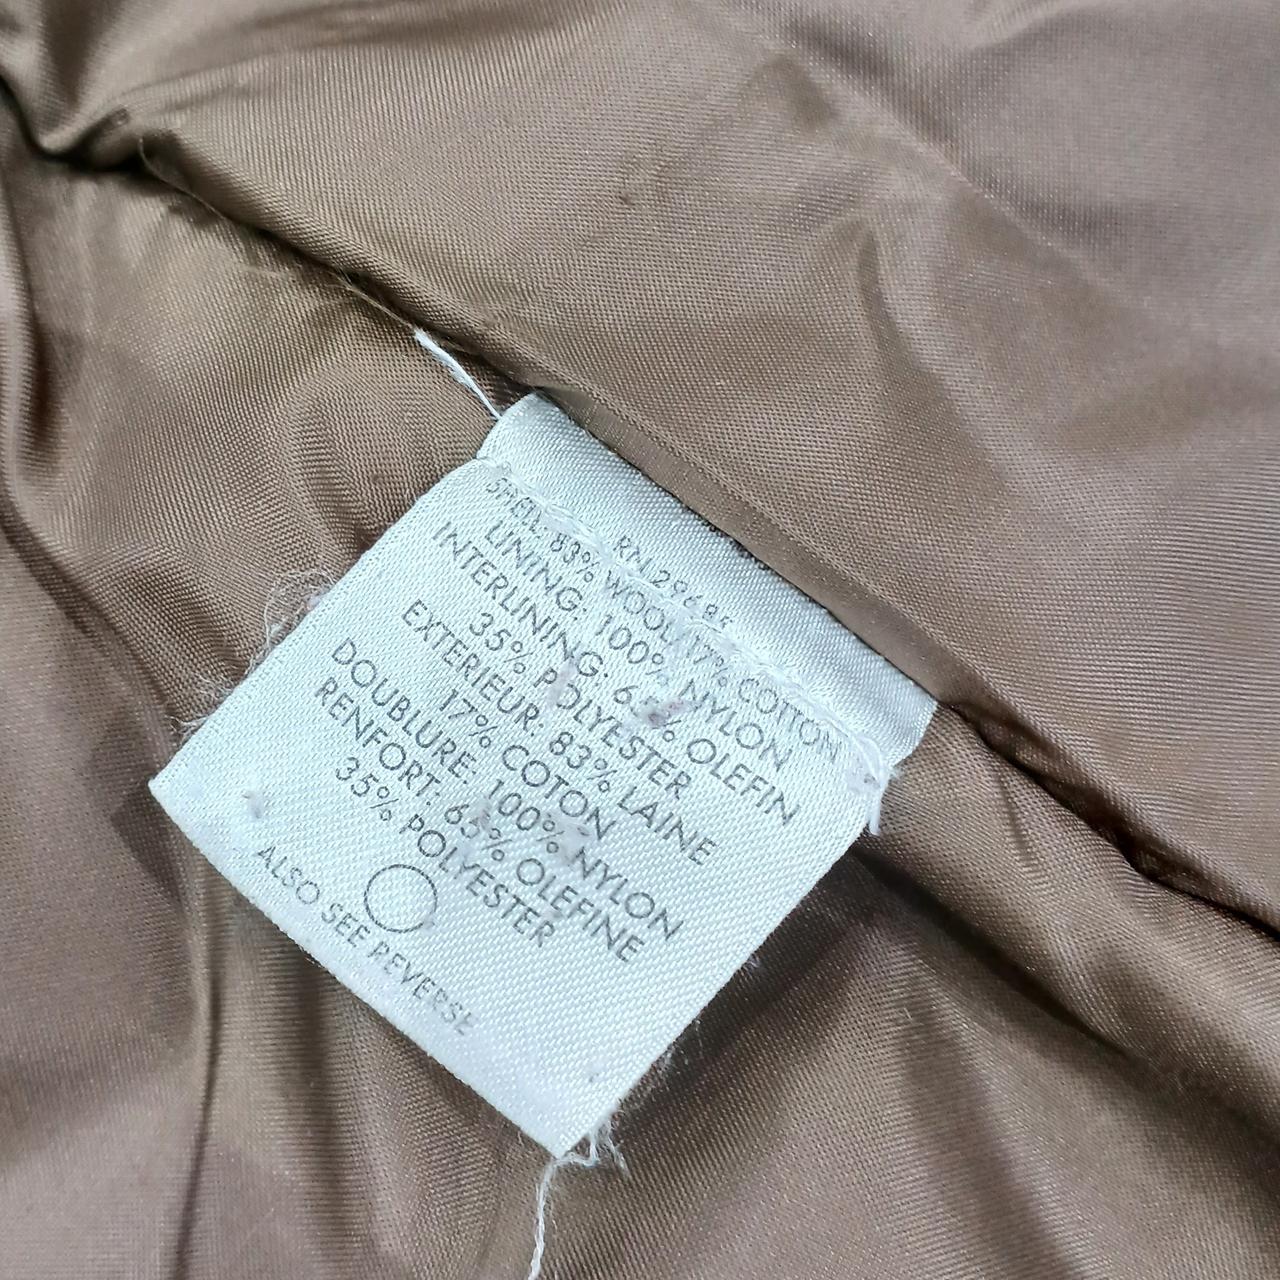 RN 29685
SHELL: 83% WOOL/17% COTTON
LINING: 100% NYLON
INTERLINING: 65% OLEFIN
35% POLYESTER
EXTERIEUR: 83% LAINE
17% COTON
DOUBLURE: 100% NYLON
RENFORT: 65% OLEFINE
35% POLYESTER
ALSO SEE REVERSE